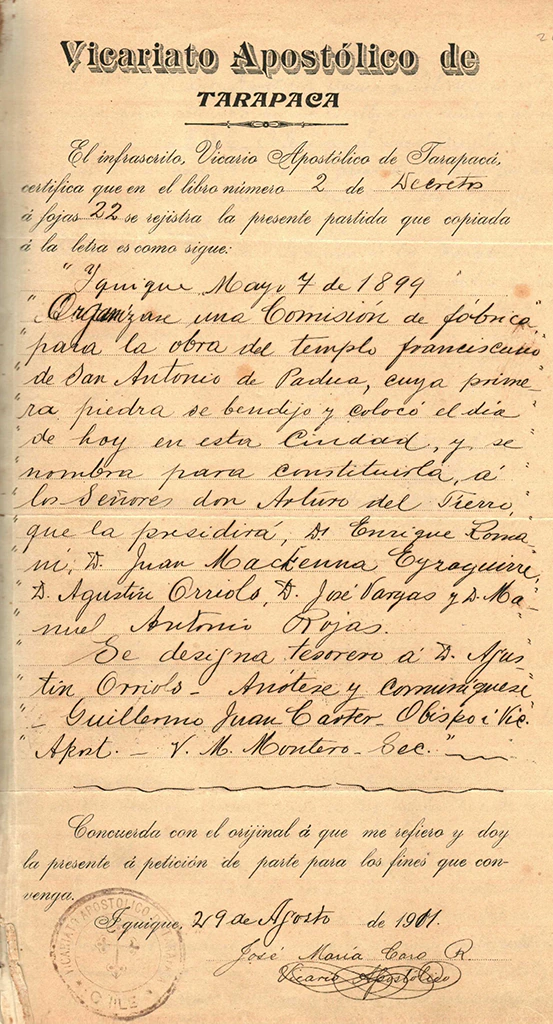 Vicariato Apostólico de
TARAPACA
El infrascrito, Vicario Apostólico de Tarapacá,
certifica que en el libro número 2 de Decretos
á fojas 22 se rejistra la presente partida que copiada
á la letra es como sigue:
"Iquique Mayo 7 de 1899"
"Organízase una Comisión de fábrica"
"para la obra del templo franciscano"
"de San Antonio de Padua, cuya prime-"
"ra piedra se bendijo y colocó el día"
"de hoy en esta Ciudad, y se"
"nombra para constituirla, á"
"los Señores don Arturo del Fierro,"
"que la presidirá, Dn Enrique Loma-"
"ní, D. Juan Mackenna Eyzaguirre,"
"D. Agustín Orriols, D. José Vargas y D. Ma-"
"nuel Antonio Rojas.
"Se designa tesorero á D. Agus-"
"tín Orriols - Anótese y comuníquese"
"- Guillermo Juan Carter - Obispo i Vic."
"Apost. - V. M. Montero - Sec."
Concuerda con el orijinal á que me refiero y doy
la presente á petición de parte para los fines que con-
venga.
Iquique, 29 de Agosto de 1911.
José María Caro R.
Vicario Apostólico
VICARIATO APOSTOLICO
CHILE